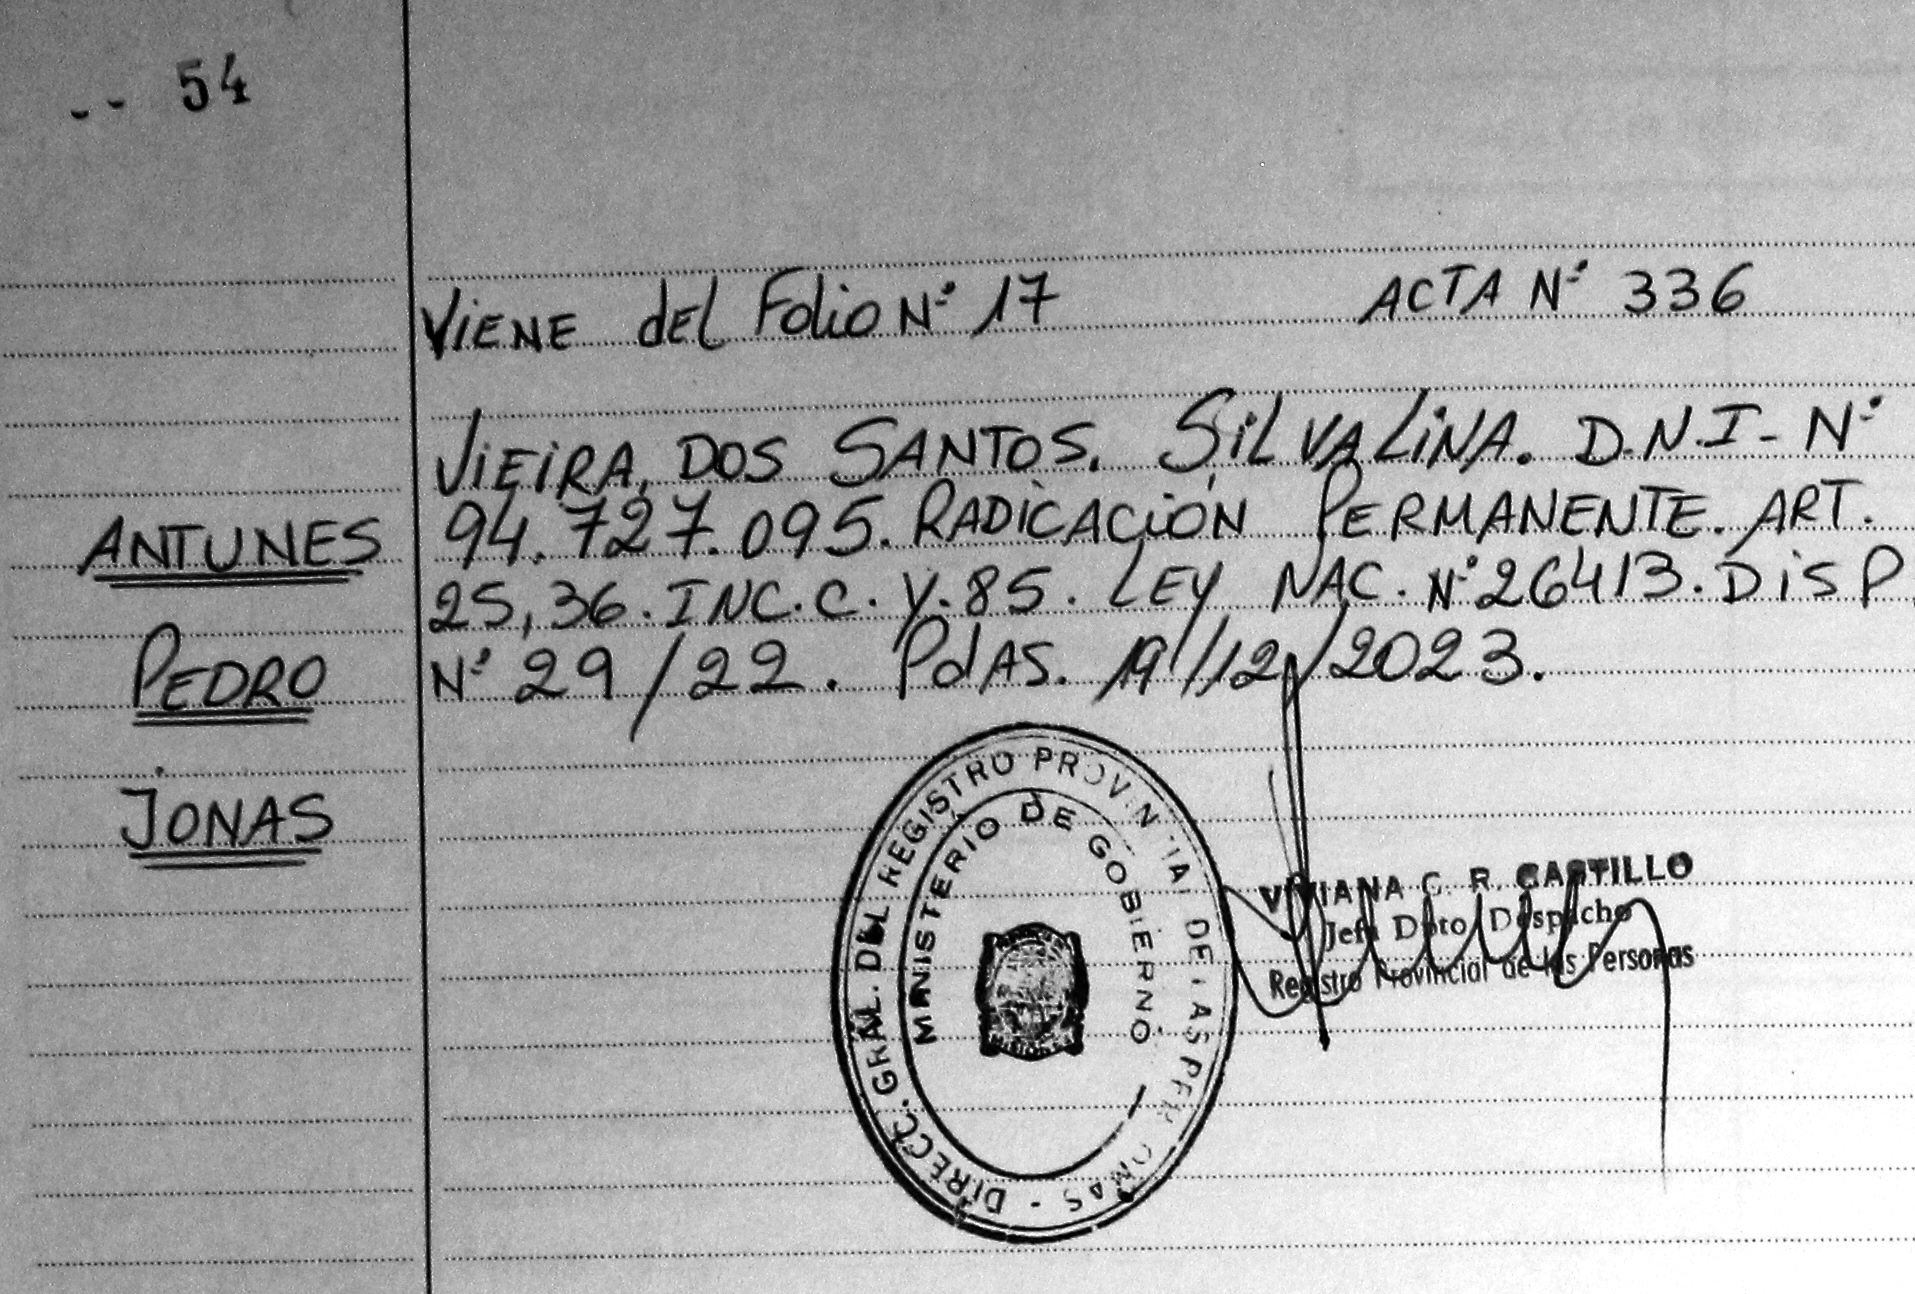 -- 54
VIENE del Folio Nº 17 ACTA Nº 336
VIEIRA, DOS SANTOS. SILVALINA. D.N.I- Nº
94.727.095. RADICACIÓN PERMANENTE. ART.
25,36. INC. C. Y. 85. LEY NAC. Nº 26413. DISP.
Nº 29/22. PdAS. 19/12/2023.
ANTUNES
PEDRO
JONAS
DIRECC. GRAL. DEL REGISTRO PROVINCIAL DE LAS PERSONAS -
MINISTERIO DE GOBIERNO
MISIONES
VIVIANA C. R. CASTILLO
Jefa Dpto Despacho
Registro Provincial de las Personas